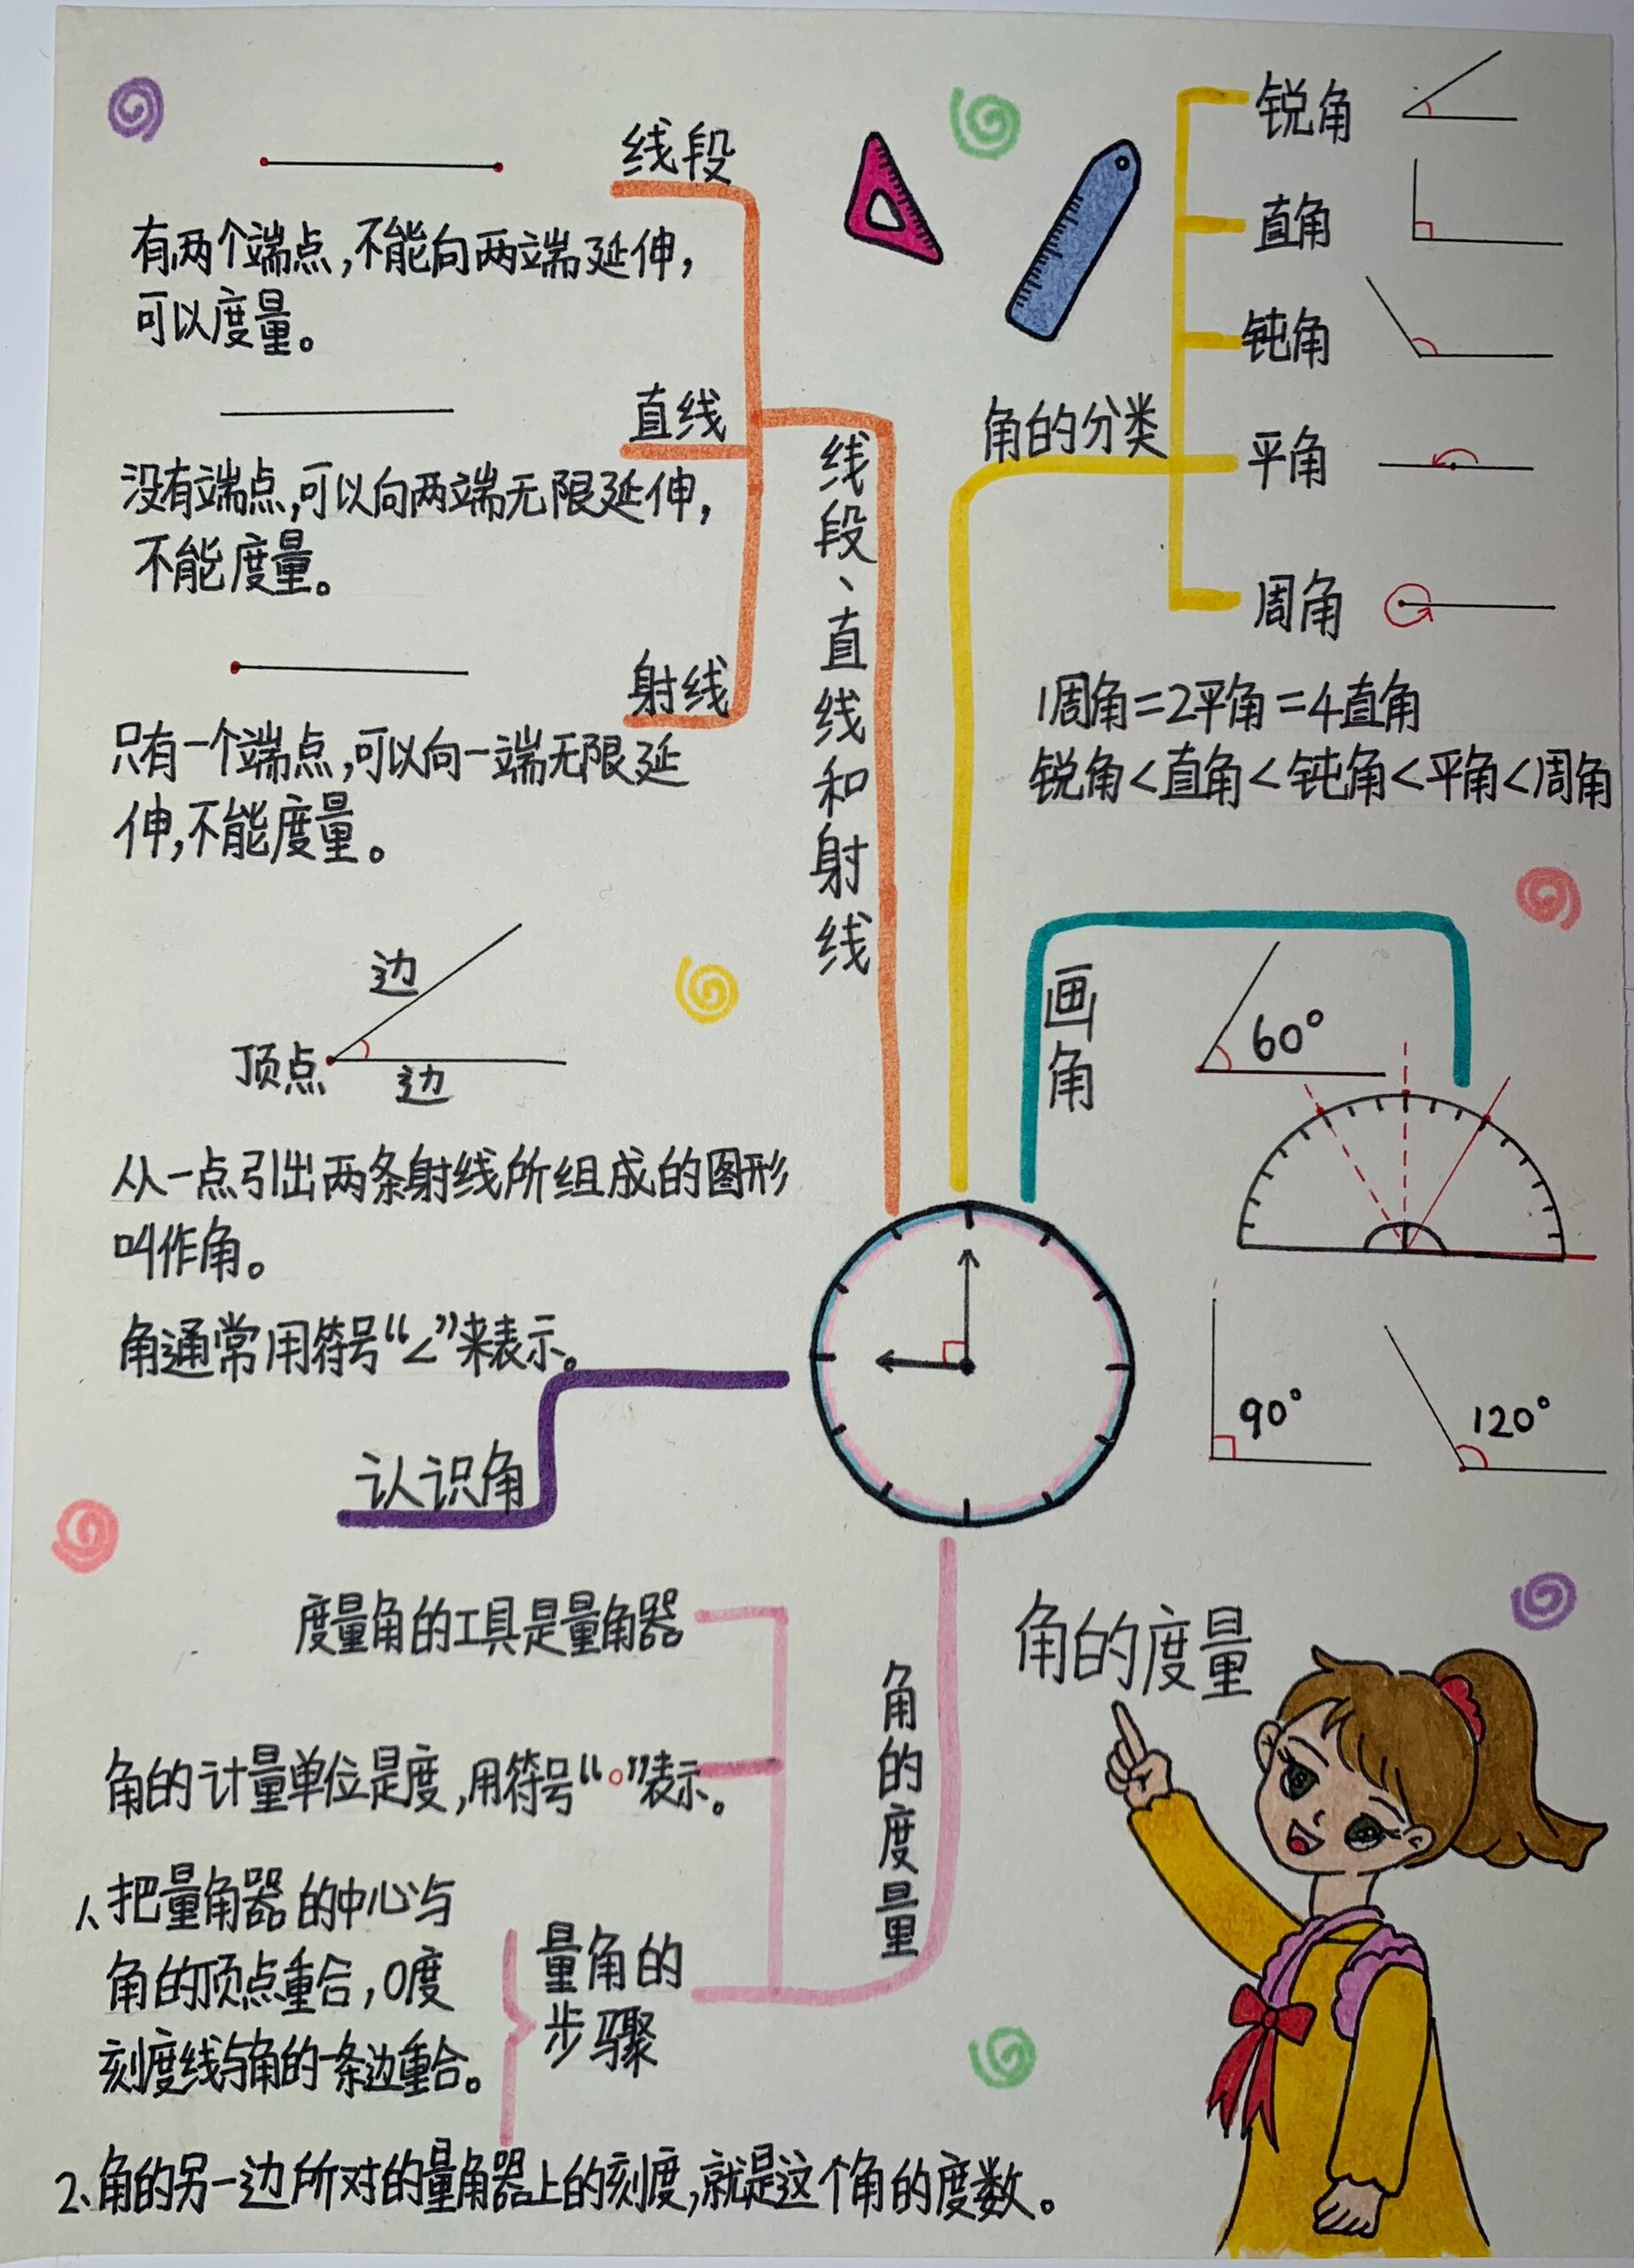 线段
有两个端点,不能向两端延伸,
可以度量。
直线
没有端点,可以向两端无限延伸,
不能度量。
射线
只有一个端点,可以向一端无限延
伸,不能度量。
线段、直线和射线
角的分类
锐角
直角
钝角
平角
周角
1周角=2平角=4直角
锐角<直角<钝角<平角<周角
画角
60°
90°
120°
边
顶点
边
从一点引出两条射线所组成的图形
叫作角。
角通常用符号“∠”来表示。
认识角
角的度量
度量角的工具是量角器
角的计量单位是度,用符号“°”表示。
量角的
步骤
1、把量角器的中心与
角的顶点重合,0度
刻度线与角的一条边重合。
2、角的另一边所对的量角器上的刻度,就是这个角的度数。
角的度量